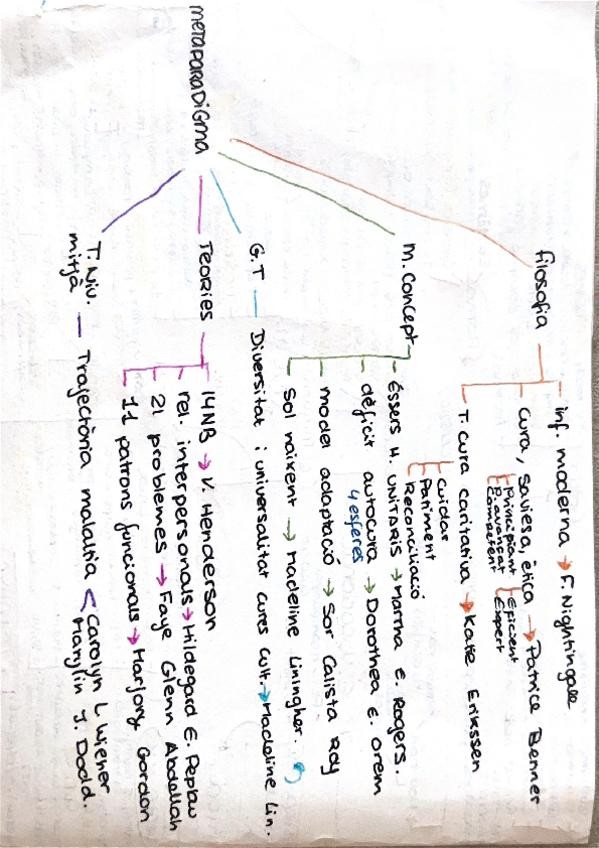 metaparadigma
filosofia
inf. moderna → F. Nightingale
cura, saviesa, ètica → Patrice Benner
Principiant
P. avançat
Competent
Eficient
Expert
T. cura caritativa → Katie Erikssen
Cuidar
Patiment
Reconciliació
M. Concept
éssers H. UNITARIS → Martha E. Rogers.
dèficit autocura → Dorothea E. Orem
4 esferes
model adaptació → Sor Calista Roy
Sol naixent → Madeline Liningher.
G.T — Diversitat i universalitat cures cult. → Madeline Lin.
TEORIES
14NB → V. Henderson
rel. interpersonals → Hildegard E. Peplau
21 problemes → Faye Glenn Abdellah
11 patrons funcionals → Marjory Gordon
T. Niv. mitjà — Trajectòria malaltia < Carolyn L Wiener
Marylin J. Dodd.